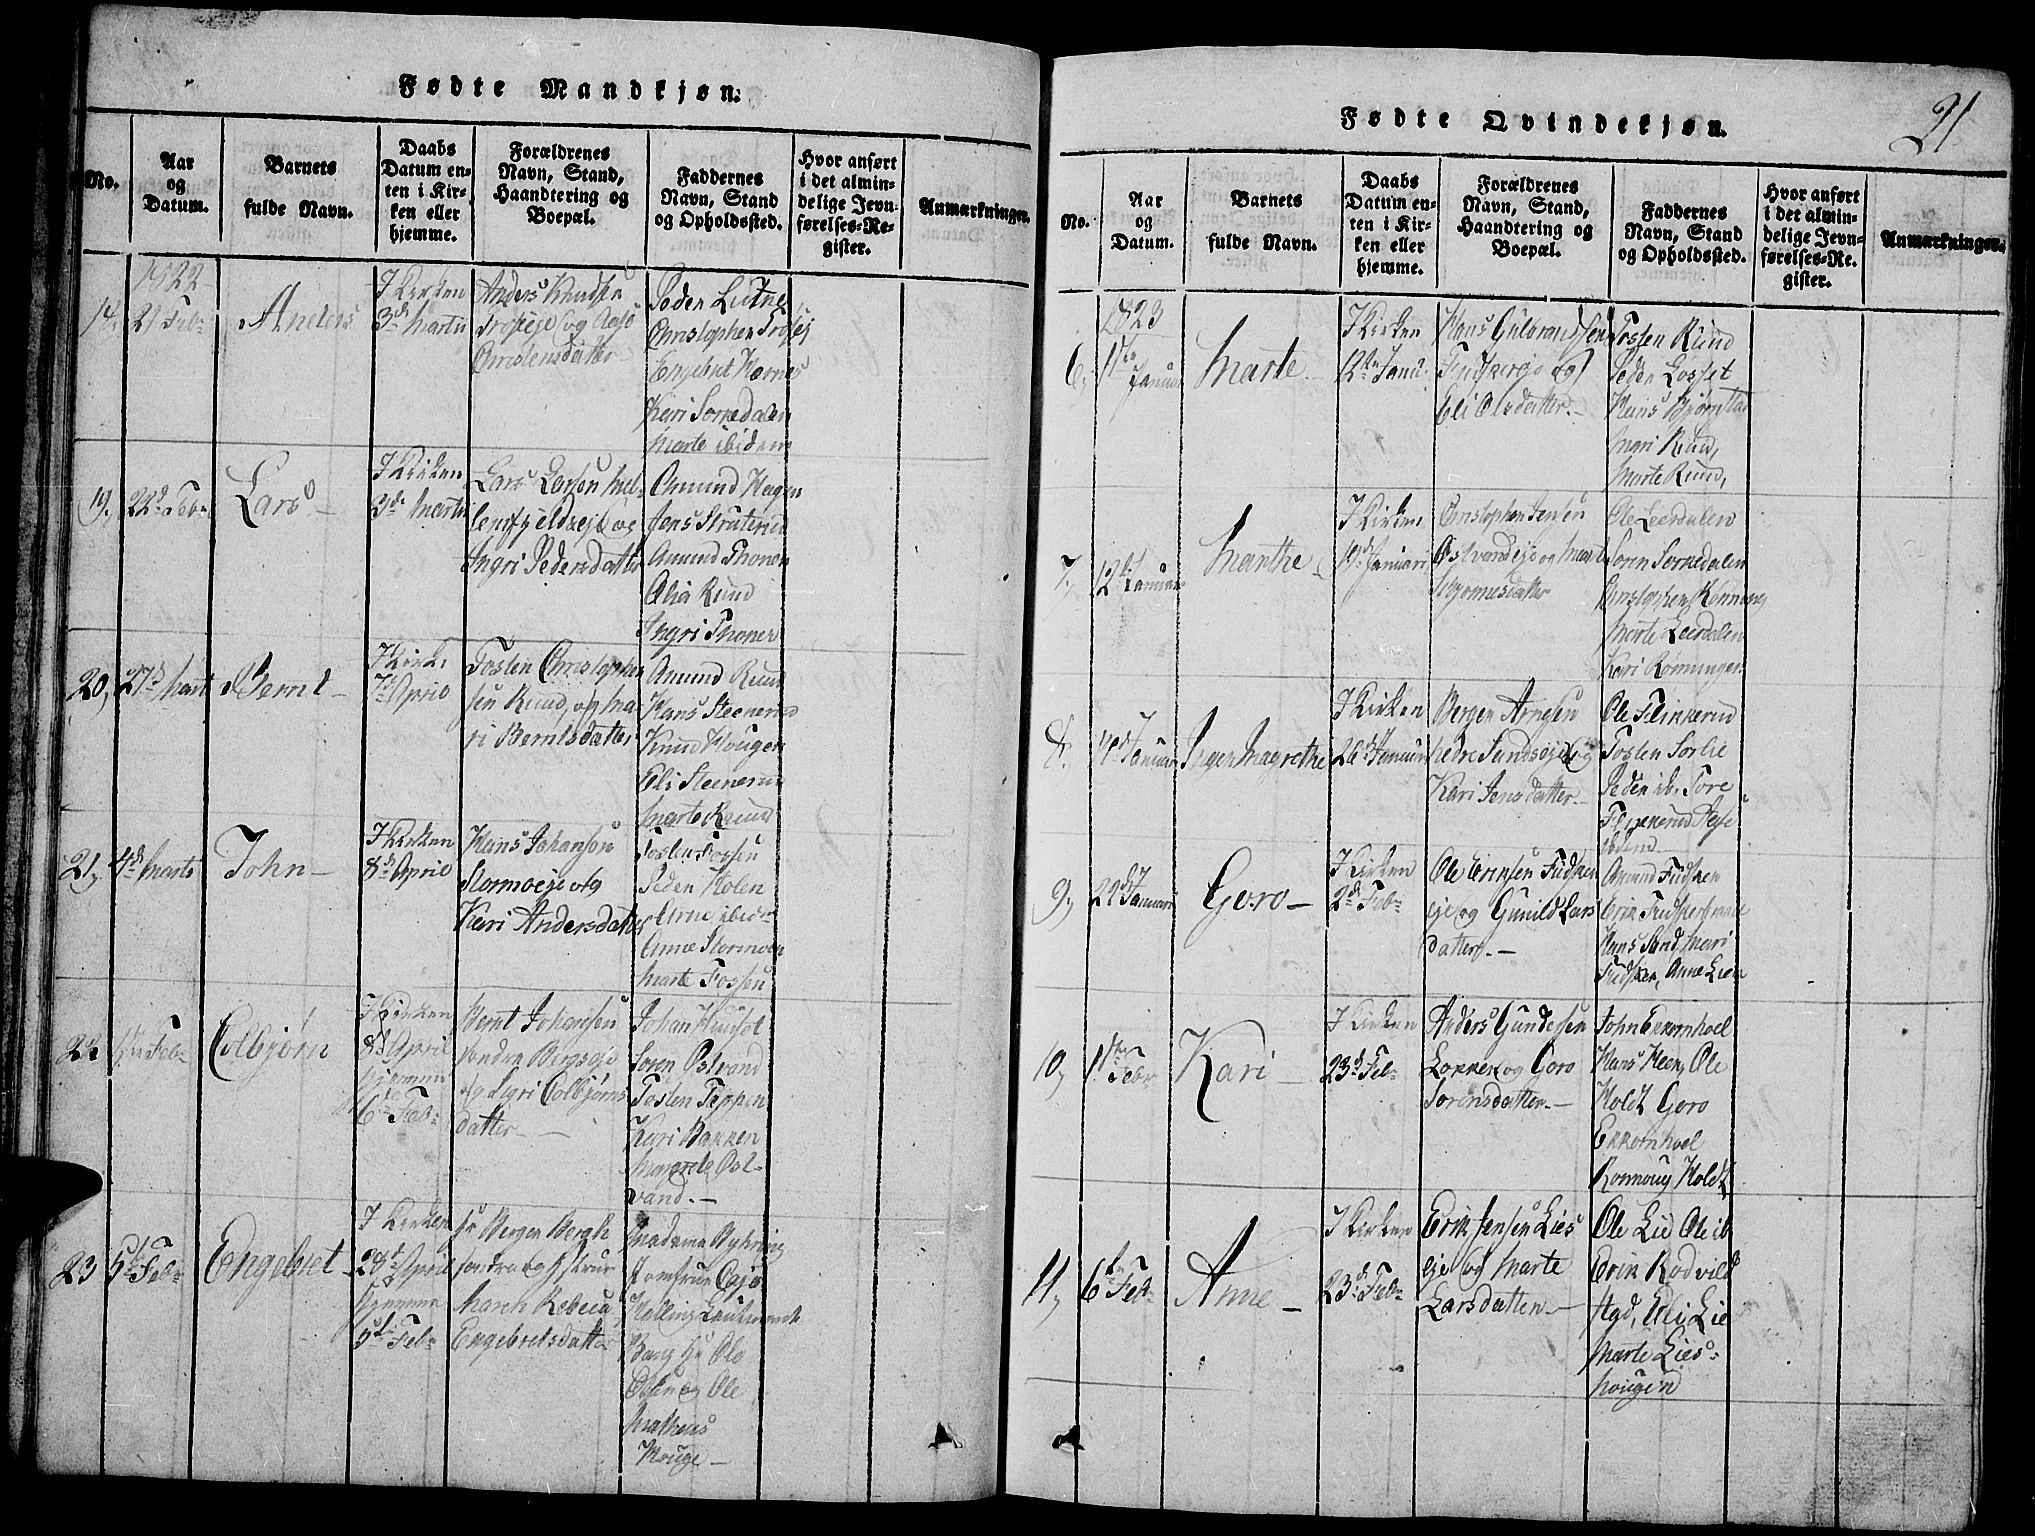 Fødte Mandkjøn.
No.
Aar
og
Datum.
Barnets
fulde Navn.
Daabs
Datum en-
ten i Kir-
ken eller
hjemme.
Forældrenes
Navn, Stand,
Haandtering og
Boepæl.
Faddernes
Navn, Stand
og Opholdssted.
Hvor anført
i det almin-
delige Jevn-
førelses-Re-
gister.
Anmærkninger.
1822
21 Febr
Anders
I Kirken
3de Martii
Anders Knudsen
og
Christensdatter
Peder
Christopher
Engebret Hornes
Kari Sorkedalen
Marte ibidem
19,
22de Febr
Lars –
I Kirken
3de Martii
Lars Larsen
og
Ingri Pedersdatter
Amund Hagen
Jens
Amund Thonen
Ruud
Ingri Thonen
20,
27de Mart
Bernt –
I Kirken
7de April
Tosten Christopher
sen Ruud, og Ma
ri Berntsdatter
Amund Ruud
Hans Steenerud
Knud Hougen
Eli Steenerud
Marte Ruud
21,
4de Marts
John –
I Kirken
8de April
Hans Johansen
Stormoeje og
Kari Andersdatter
Tosten Fossen
Peder Holen
Arne ibid
Anne Stormoen
Marte Fossen
22
Febr
Colbjørn
I Kirken
8de April
hjemme
6te Febr
Bernt Johansen
søndre Bergseje
og Sigri Colbjørns
datter –
Johan
Soren Østvand
Tosten Teppen
Kari Bakken
Marte Øst-
vand. –
23
5te Febr
Engebret –
I Kirken
29de April
hjemme
5te Febr
Hr Bergen Bergh
søndre og Frue
Maren Rebecca
Engebretsdatter
Madame Nyhring
Jomfrue Caja
Lieutenant
Bang Hr Ole
Olsen og Ole
Mathias
Houge –
21
Fødte Qvindekjøn.
No.
Aar
og
Datum.
Barnets
fulde Navn.
Daabs
Datum en-
ten i Kir-
ken eller
hjemme.
Forældrenes
Navn, Stand,
Haandtering og
Boepæl.
Faddernes
Navn, Stand
og Opholdssted.
Hvor anført
i det almin-
delige Jevn-
førelses-Re-
gister.
Anmærkninger.
1823
6,
1te Januar
Marte –
I Kirken
12te Janu
Hans Gulbrandsen
og
Eli Olsdatter. –
Tosten Ruud
Peder Losset
Hans
Ingri Ruud,
Marte Ruud,
7,
12te Januar
Marthe
I Kirken
19de Januari
Christopher Jensen
Østvandeje og Marte
Ole Leerdalen
Soren Sorkedalen
Christopher Rønning
Marte Leerdalen
Kari Rønningen
8.
Januar
Inger Magrethe
I Kirken
26de Januar
Bergen Arnesen
nedre Sundseje og
Kari Jensdatter. –
Ole Flinkerud
Tosten Sorlie
Peder ib. Tore
ibidem –
9,
22de Januari
Goro –
I Kirken
2de Febr
Ole Eriksen Fidsker
eje og Gunild Lars
datter. –
Amund Fidsker
Erik
Hans Sand Mari
Fidsker, Anne Lien
10,
1te Febr
Kari –
I Kirken
23de Feb
Anders Gundersen
Løkken og Goro
Sorensdatter. –
John Ekornhoel
Hans Heen Ole
Holdt Goro
Ekornhoel
Ronnoug Holdt
11,
6te Feb
Anne –
I Kirken
23de Feb
Erik Jensen Lies
eje og Marte
Larsdatter –
Ole Lie Ole ib
Erik Rodvild
Eli Lie
Marte Lies-
hougen